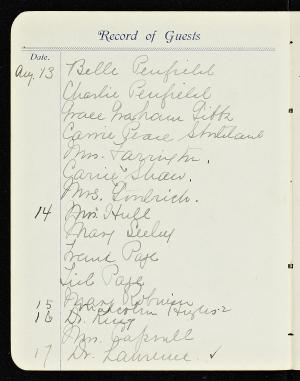 Record of Guests
Date.
Aug. 13 Belle Penfield
Charlie Penfield
Grace Graham Gibbs
Carrie Pease
Mrs. Farrington.
Carrie Shaw.
Mrs. Goodrich.
14 Mrs. Hull
Mary Seeley
Page
Page
15 Mary Robinson
Malcolm Hughes
16 Dr. King
Mrs.
17 Dr. Lawrence ✓